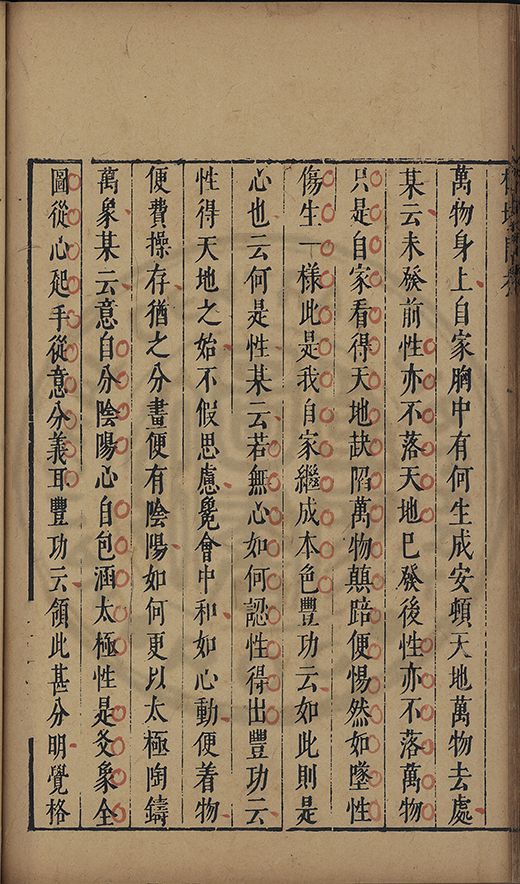 萬物身上自家胸中有何生成安頓天地萬物去處
某云未發前性亦不落天地已發後性亦不落萬物
只是自家看得天地缺陷萬物顛踣便惕然如墜性
傷生一樣此是我自家繼成本色豐功云如此則是
心也云何是性某云若無心如何認性得出豐功云
性得天地之始不假思慮纔會中和如心動便着物
便費操存猶之分畫便有陰陽如何更以太極陶鑄
萬象某云意自分陰陽心自包涵太極性是爻象全
圖從心起手從意分義耳豐功云領此甚分明覺格